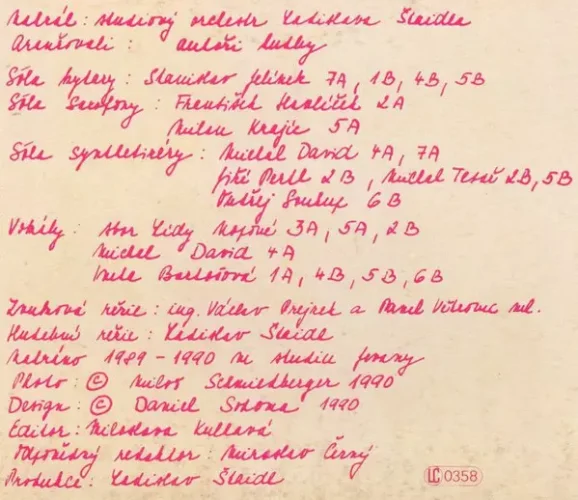 Nahrál: studiový orchestr Ladislava Štaidla
Aranžovali: autoři hudby
Sóla kytary: Stanislav Jelínek 7A, 1B, 4B, 5B
Sóla Saxofony: František Havlíček 2A
Milan Krajíc 5A
Sóla syntetizéry: Michal David 4A, 7A
Jiří Pertl 2B, Michal Tesař 2B, 5B
Ondřej Soukup 6B
Vokály: sbor Lídy Nopové 3A, 5A, 2B
Michal David 4A
Iveta Bartošová 1A, 4B, 5B, 6B
Zvuková režie: ing. Václav a Pavel ml.
Hudební režie: Ladislav Štaidl
Nahráno 1989-1990 ve studiu
Photo: © Miloš Schmiedberger 1990
Design: © Daniel 1990
Editor: Miloslava Kullavá
Odpovědný redaktor: Miroslav Černý
Produkce: Ladislav Štaidl
LC 0358